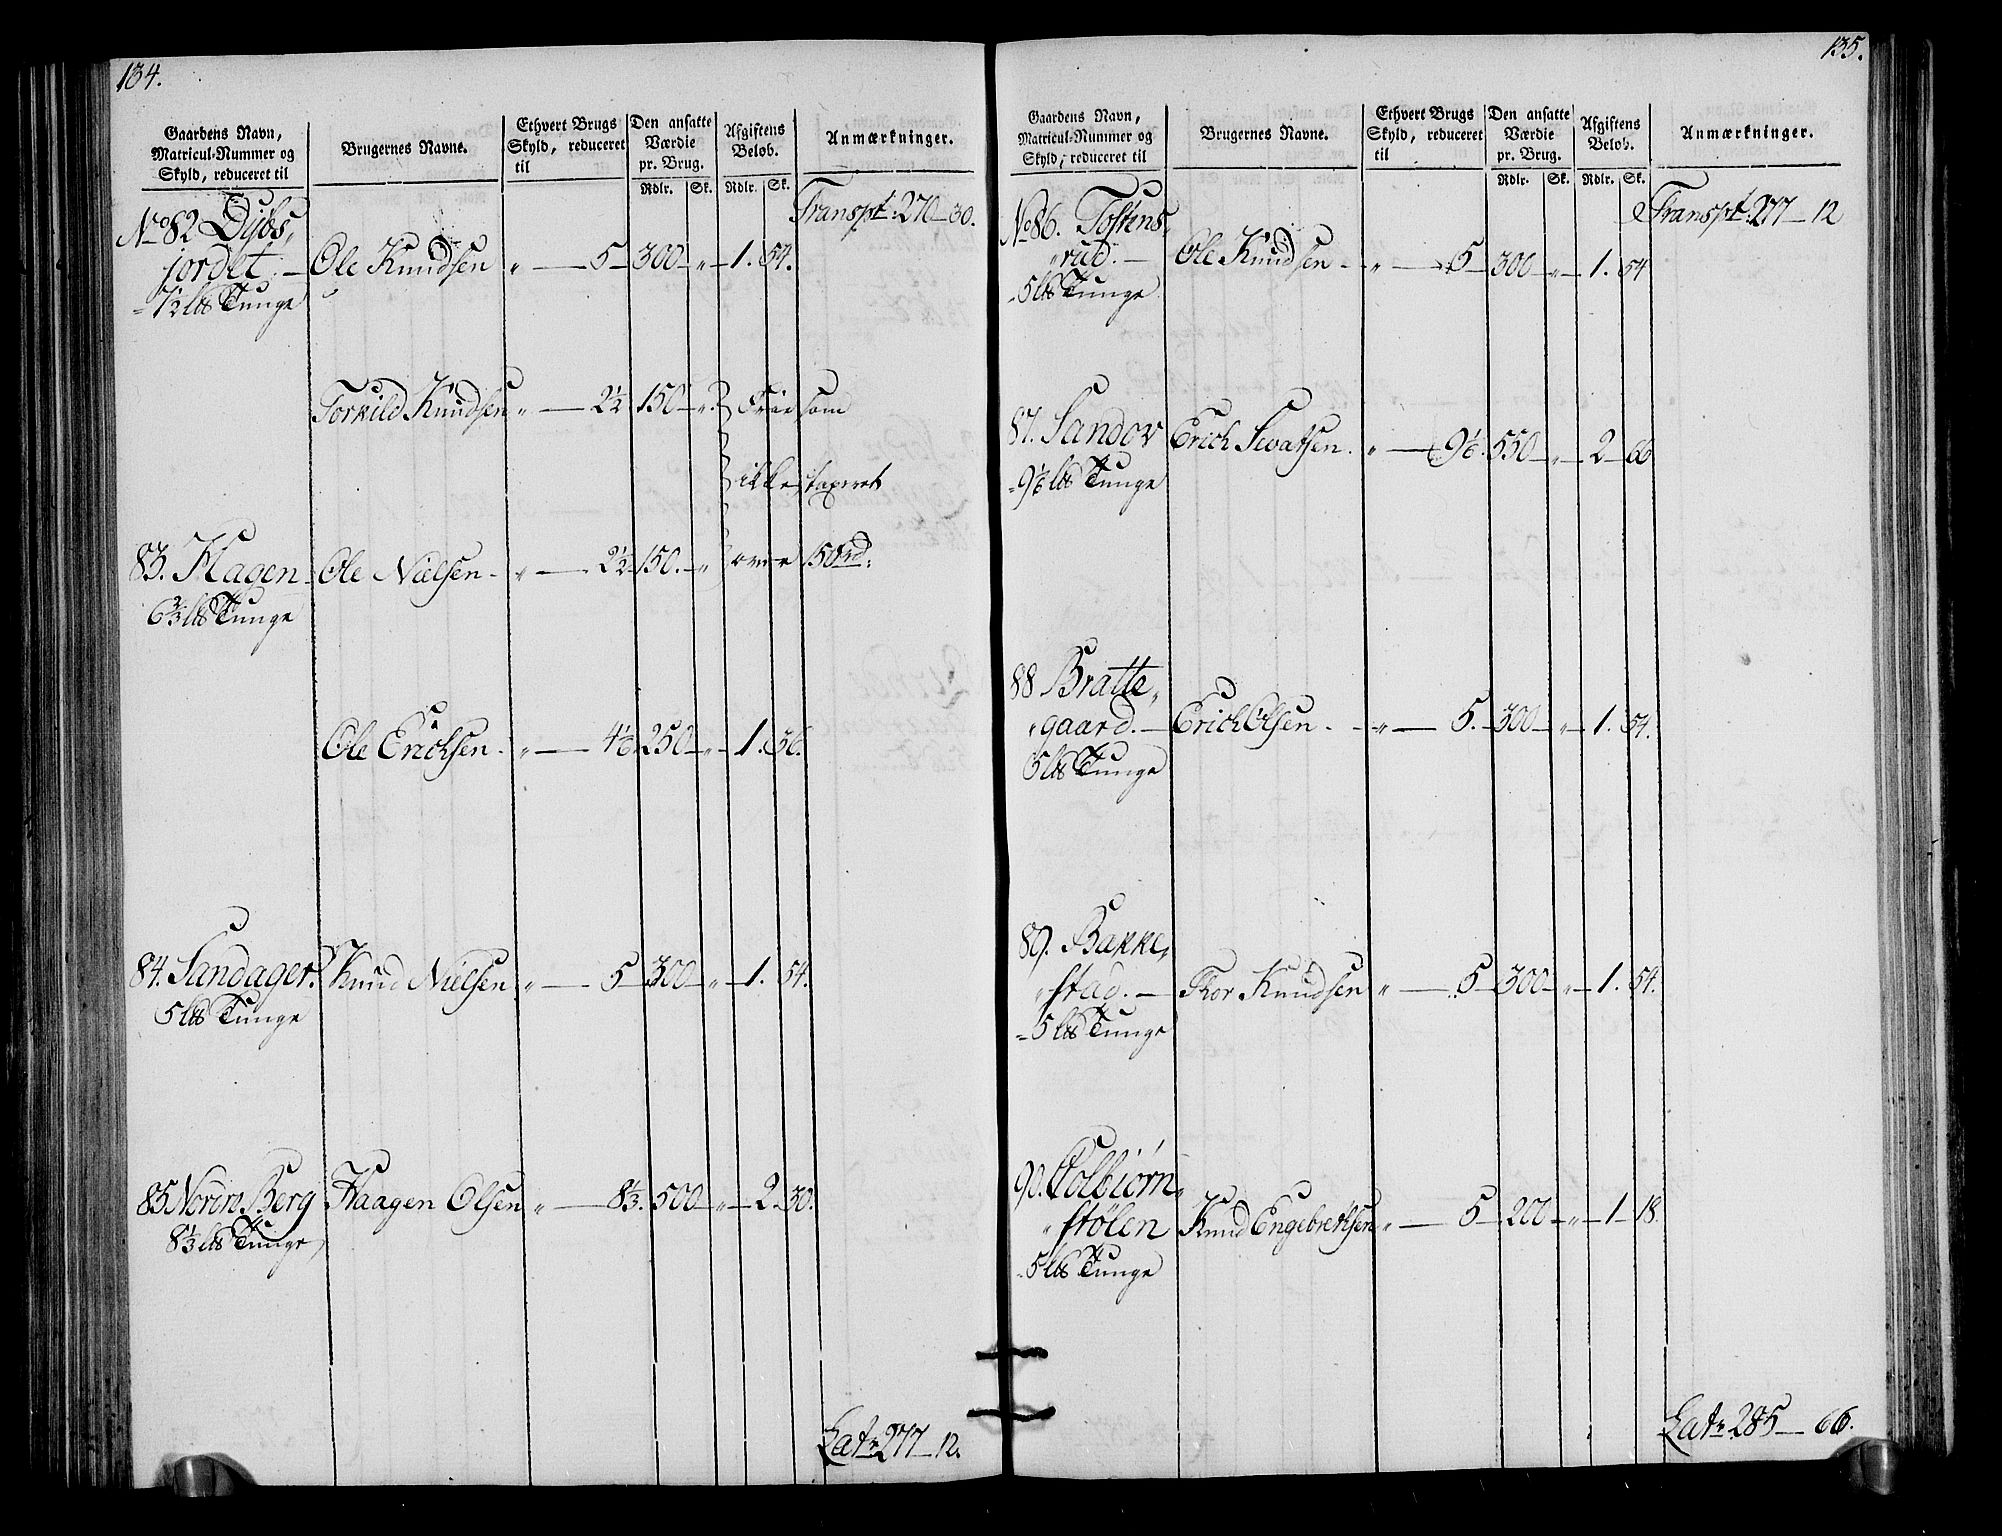 134.
Gaardens Navn, Matricul-Nummer og Skyld, reduceret til
Brugernes Navne.
Ethvert Brugs Skyld, reduceret til
Den ansatte Værdie pr. Brug.
Afgiftens Beløb.
Anmærkninger.
Rdlr. Sk. Rdlr. Sk.
Transpt: 270 — 30.
No 82 Dybs,
jordet. — Ole Knudsen „ — 5 — 300 — „ — 1. 54.
= 7½ lb Tunge
Torkild Knudsen „ — 2½ 150 — „ Frie som
ikke taxeret
83. Hagen — Ole Nielsen — „ — 2½ 150. — „ over 150 rd:
6⅔ lb Tunge
Ole Erichsen — „ — 4⅙ 250 — „ — 1. 36.
84. Sandager. Knud Nielsen „ — 5 — 300 — „ — 1. 54.
5 lb Tunge
85 Noren Berg Haagen Olsen „ — 8⅓. 500 — „ — 2. 30.
8⅓ lb Tunge
Latr 277 — 12.
135.
Gaardens Navn, Matricul-Nummer og Skyld, reduceret til
Brugernes Navne.
Ethvert Brugs Skyld, reduceret til
Den ansatte Værdie pr. Brug.
Afgiftens Beløb.
Anmærkninger.
Rdlr. Sk. Rdlr. Sk.
Transpt: 277 — 12
No 86. Tostens,
„rud. — Ole Knudsen — „ — 5 — 300 — „ — 1. 54
= 5 lb Tunge
87. Sandov Erich Sivatsen. „ — 9⅙. 550 — „ — 2 — 66
= 9⅙ lb Tunge
88 Bratte,
„gaard. — Erich Olsen — „ — 5. — 300 — „ — 1. 54.
5 lb Tunge
89. Bakke,
„stad. — Thor Knudsen „ — 5 — 300 — „ — 1. 54.
= 5 lb Tunge
90. Tolbiørn,
„stølen Knud Engebrethsen „ — 5 — 200 — „ — 1 — 18.
= 5 lb Tunge
Latr 285 — 66.